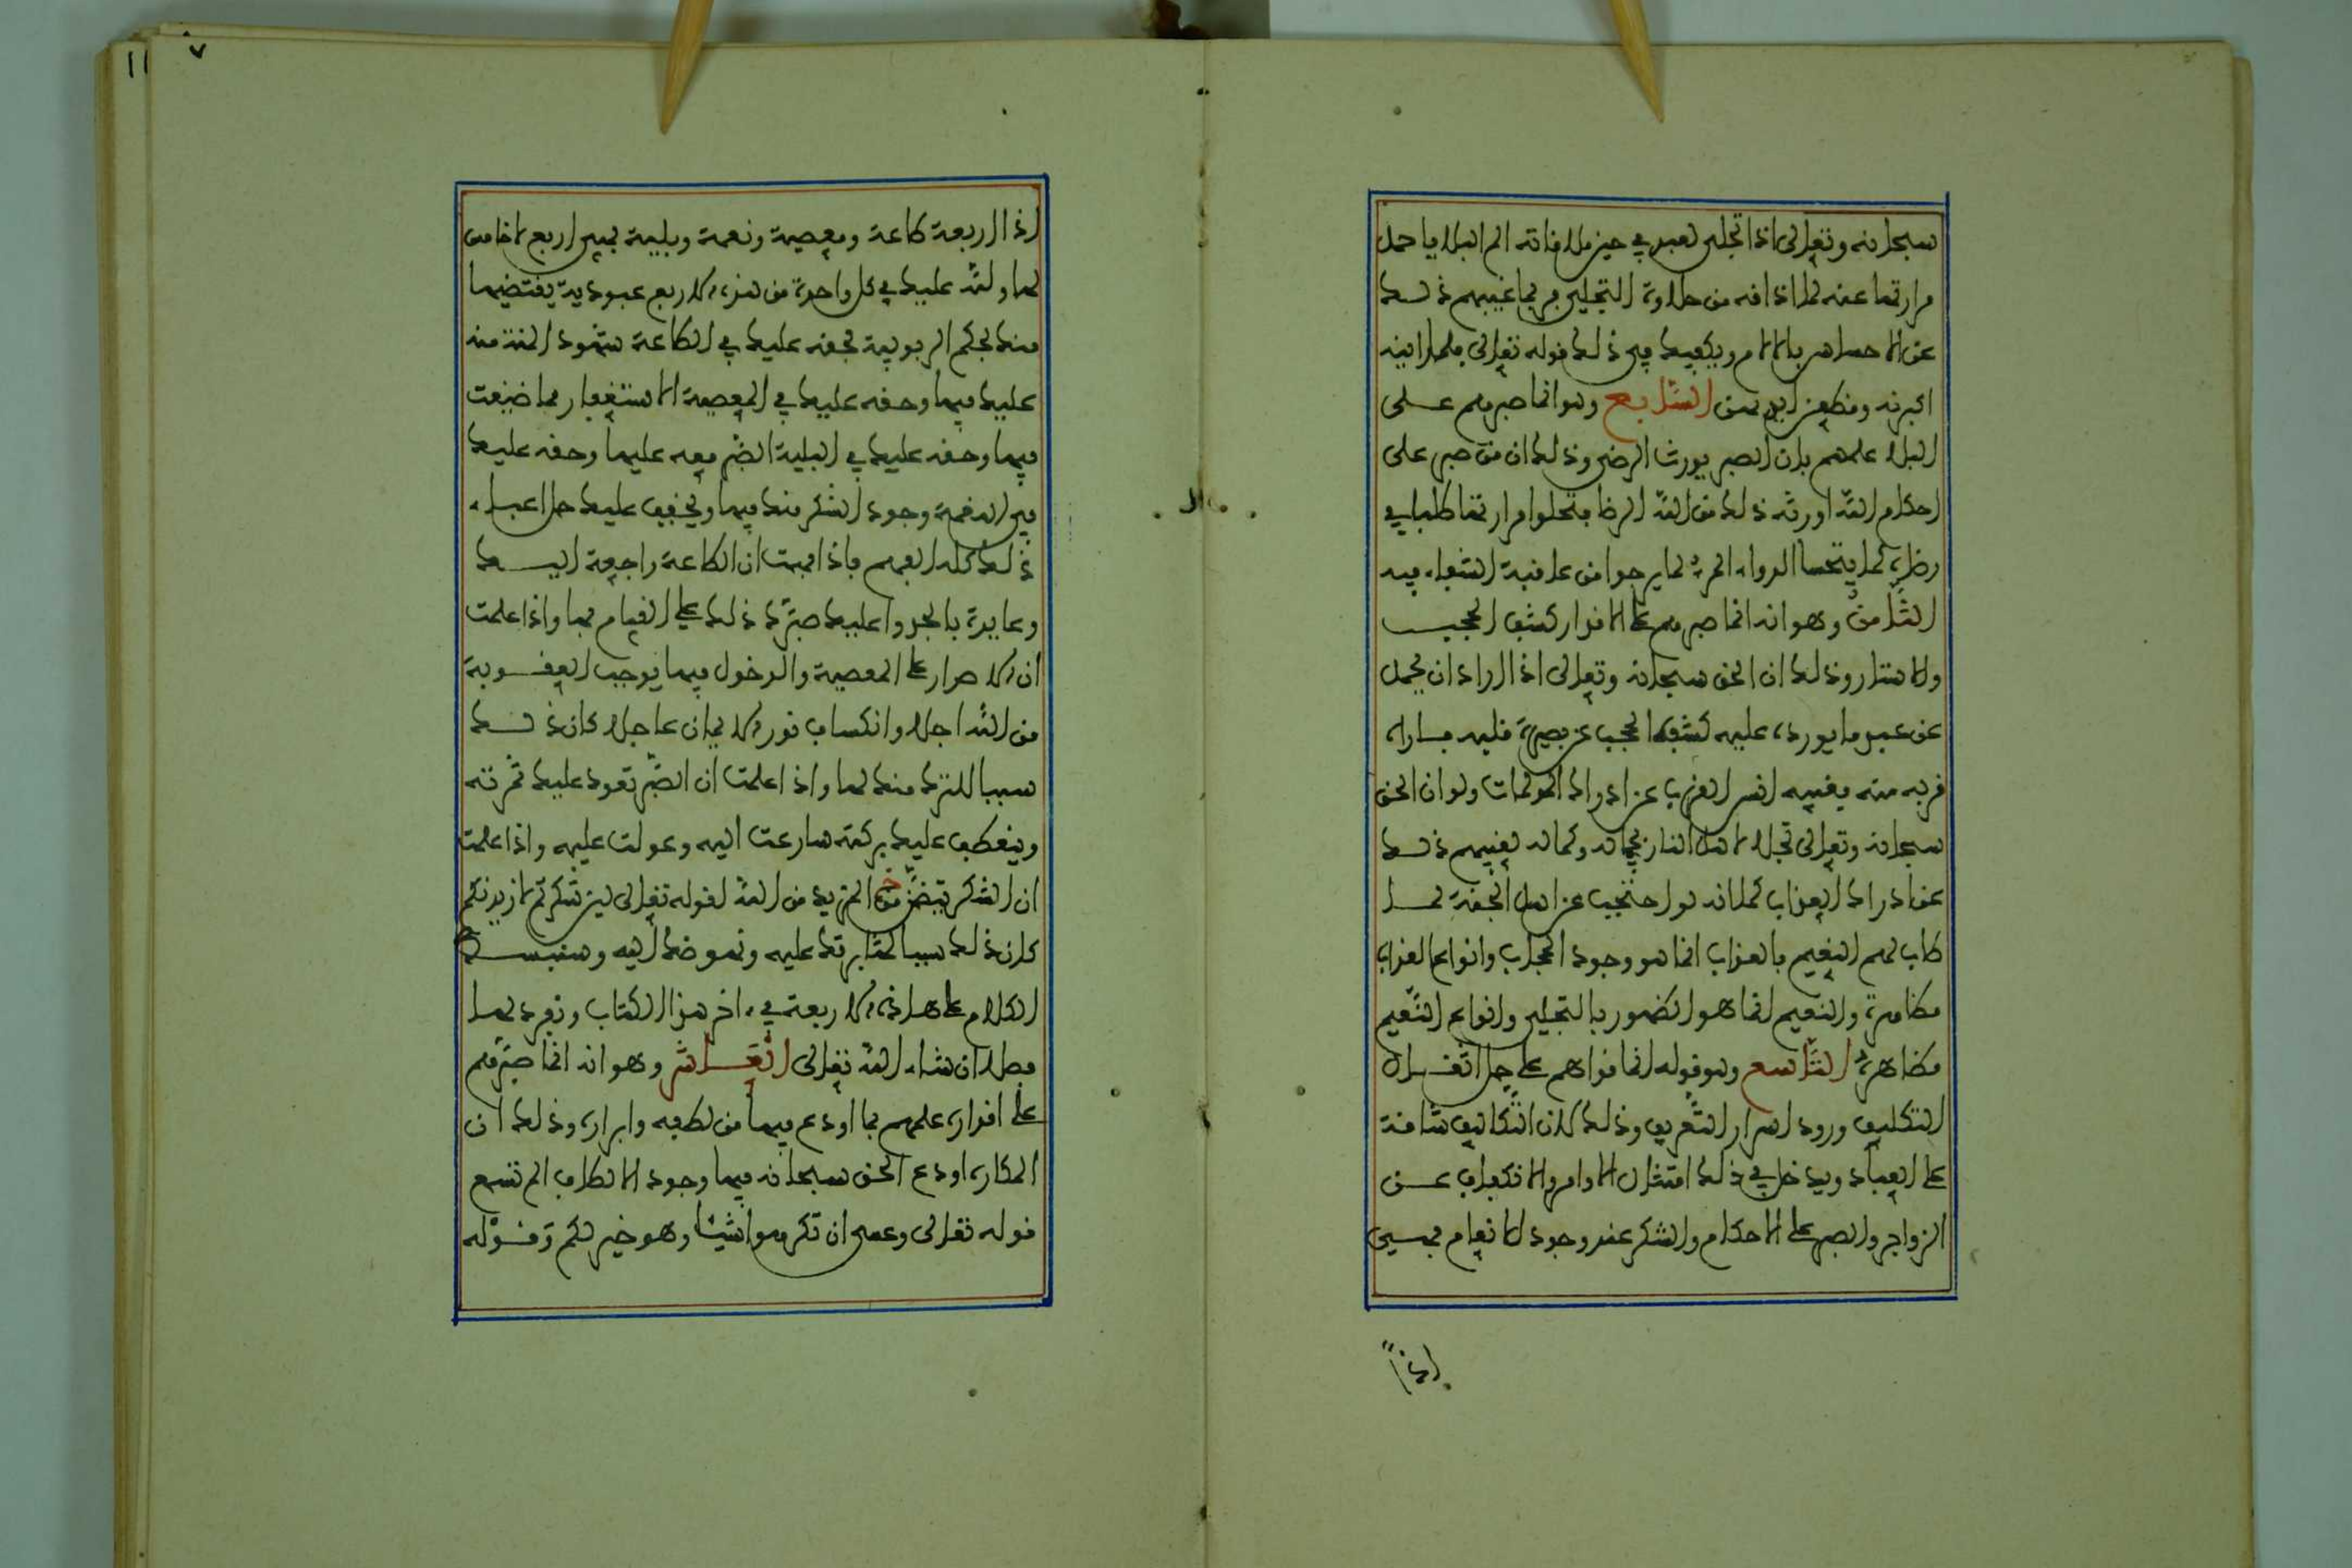 سبحانه وتعالى اذا تجلى لعبده في حين ملاقاته الم البلايا حمل
مرارتها عنه لما اذاقه من حلاوة التجلي فربما غيبهم ذلك
عن الاحساس بالالام ويكفيك في ذلك قوله تعالى فلما راينه
اكبرنه وقطعن ايديهن السابع وهو انما صبرهم على
البلاء علمهم بان الصبر يورث الرضى وذلك ان من صبر على
احكام الله اورثه ذلك من الله الرضا فتحلوا مرارتها طلبا في
رضاه كما يتحسا الدواء المر لما يرجوا من عاقبة الشفاء فيه
الثامن وهو انه انما صبرهم على الاقدار كشف الحجب
والاستار وذلك ان الحق سبحانه وتعالى اذا اراد ان يحمل
عن عبده ما يورده عليه كشف الحجب عن بصيرة قلبه فاراه
قربه منه فغيبه انس القرب عن ادراك المولمات ولو ان الحق
سبحانه وتعالى تجلا لاهل النار بجماله وكماله لغيبهم ذلك
عن ادراك العذاب كما انه لو احتجب عن اهل الجنة لما
طاب لهم النعيم فالعذاب انما هو وجود الحجاب وانواع العذاب
مظاهره والنعيم انما هو الظهور بالتجلي وانواع النعيم
مظاهره التاسع وهو قوله انما قواهم على حمل اثقال
التكليف ورود اسرار التعريف وذلك لان التكاليف شاقة
على العباد ويدخل في ذلك امتثال الاوامر والانكفاف عن
الزواجر والصبر على الاحكام والشكر عند وجود الانعام فهي
اذا
١١
٧
اذا اربعة طاعة ومعصية ونعمة وبلية فهي اربع لا خامس
لها ولله عليك في كل واحدة من هذه الاربع عبودية يقتضيها
منك بحكم الربوبية فحقه عليك في الطاعة شهود المنة منه
عليك فيها وحقه عليك في المعصية الاستغفار مما ضيعت
فيها وحقه عليك في البلية الصبر معه عليها وحقه عليك
في النعمة وجود الشكر منك فيها ويخفف عليك حمل اعباء
ذلك كله الفهم فاذا فهمت ان الطاعة راجعة اليك
وعايدة بالجدوا عليك صبرك ذلك على القيام بها واذا علمت
ان الاصرار على المعصية والدخول فيها يوجب العقوبة
من الله اجلا وانكساف نور الايمان عاجلا كان ذلك
سببا للترك منك لها واذا علمت ان الصبر تعود عليك ثمرته
وينعطف عليك بركته سارعت اليه وعولت عليه واذا علمت
ان الشكر يتضمن المزيد من الله لقوله تعالى لين شكرتم لازيدنكم
كان ذلك سببا لمثابرتك عليه ونهوضك اليه وسنبسط
الكلام على هذه الاربعة في اخر هذا الكتاب ونفرد لها
فصلا ان شاء الله تعالى العاشر وهو انه انما صبرهم
على اقداره علمهم بما اودع فيها من لطفه وابراره وذلك ان
المكاره اودع الحق سبحانه فيها وجود الالطاف الم تسمع
قوله تعالى وعسى ان تكرهوا شيئا وهو خير لكم وقوله